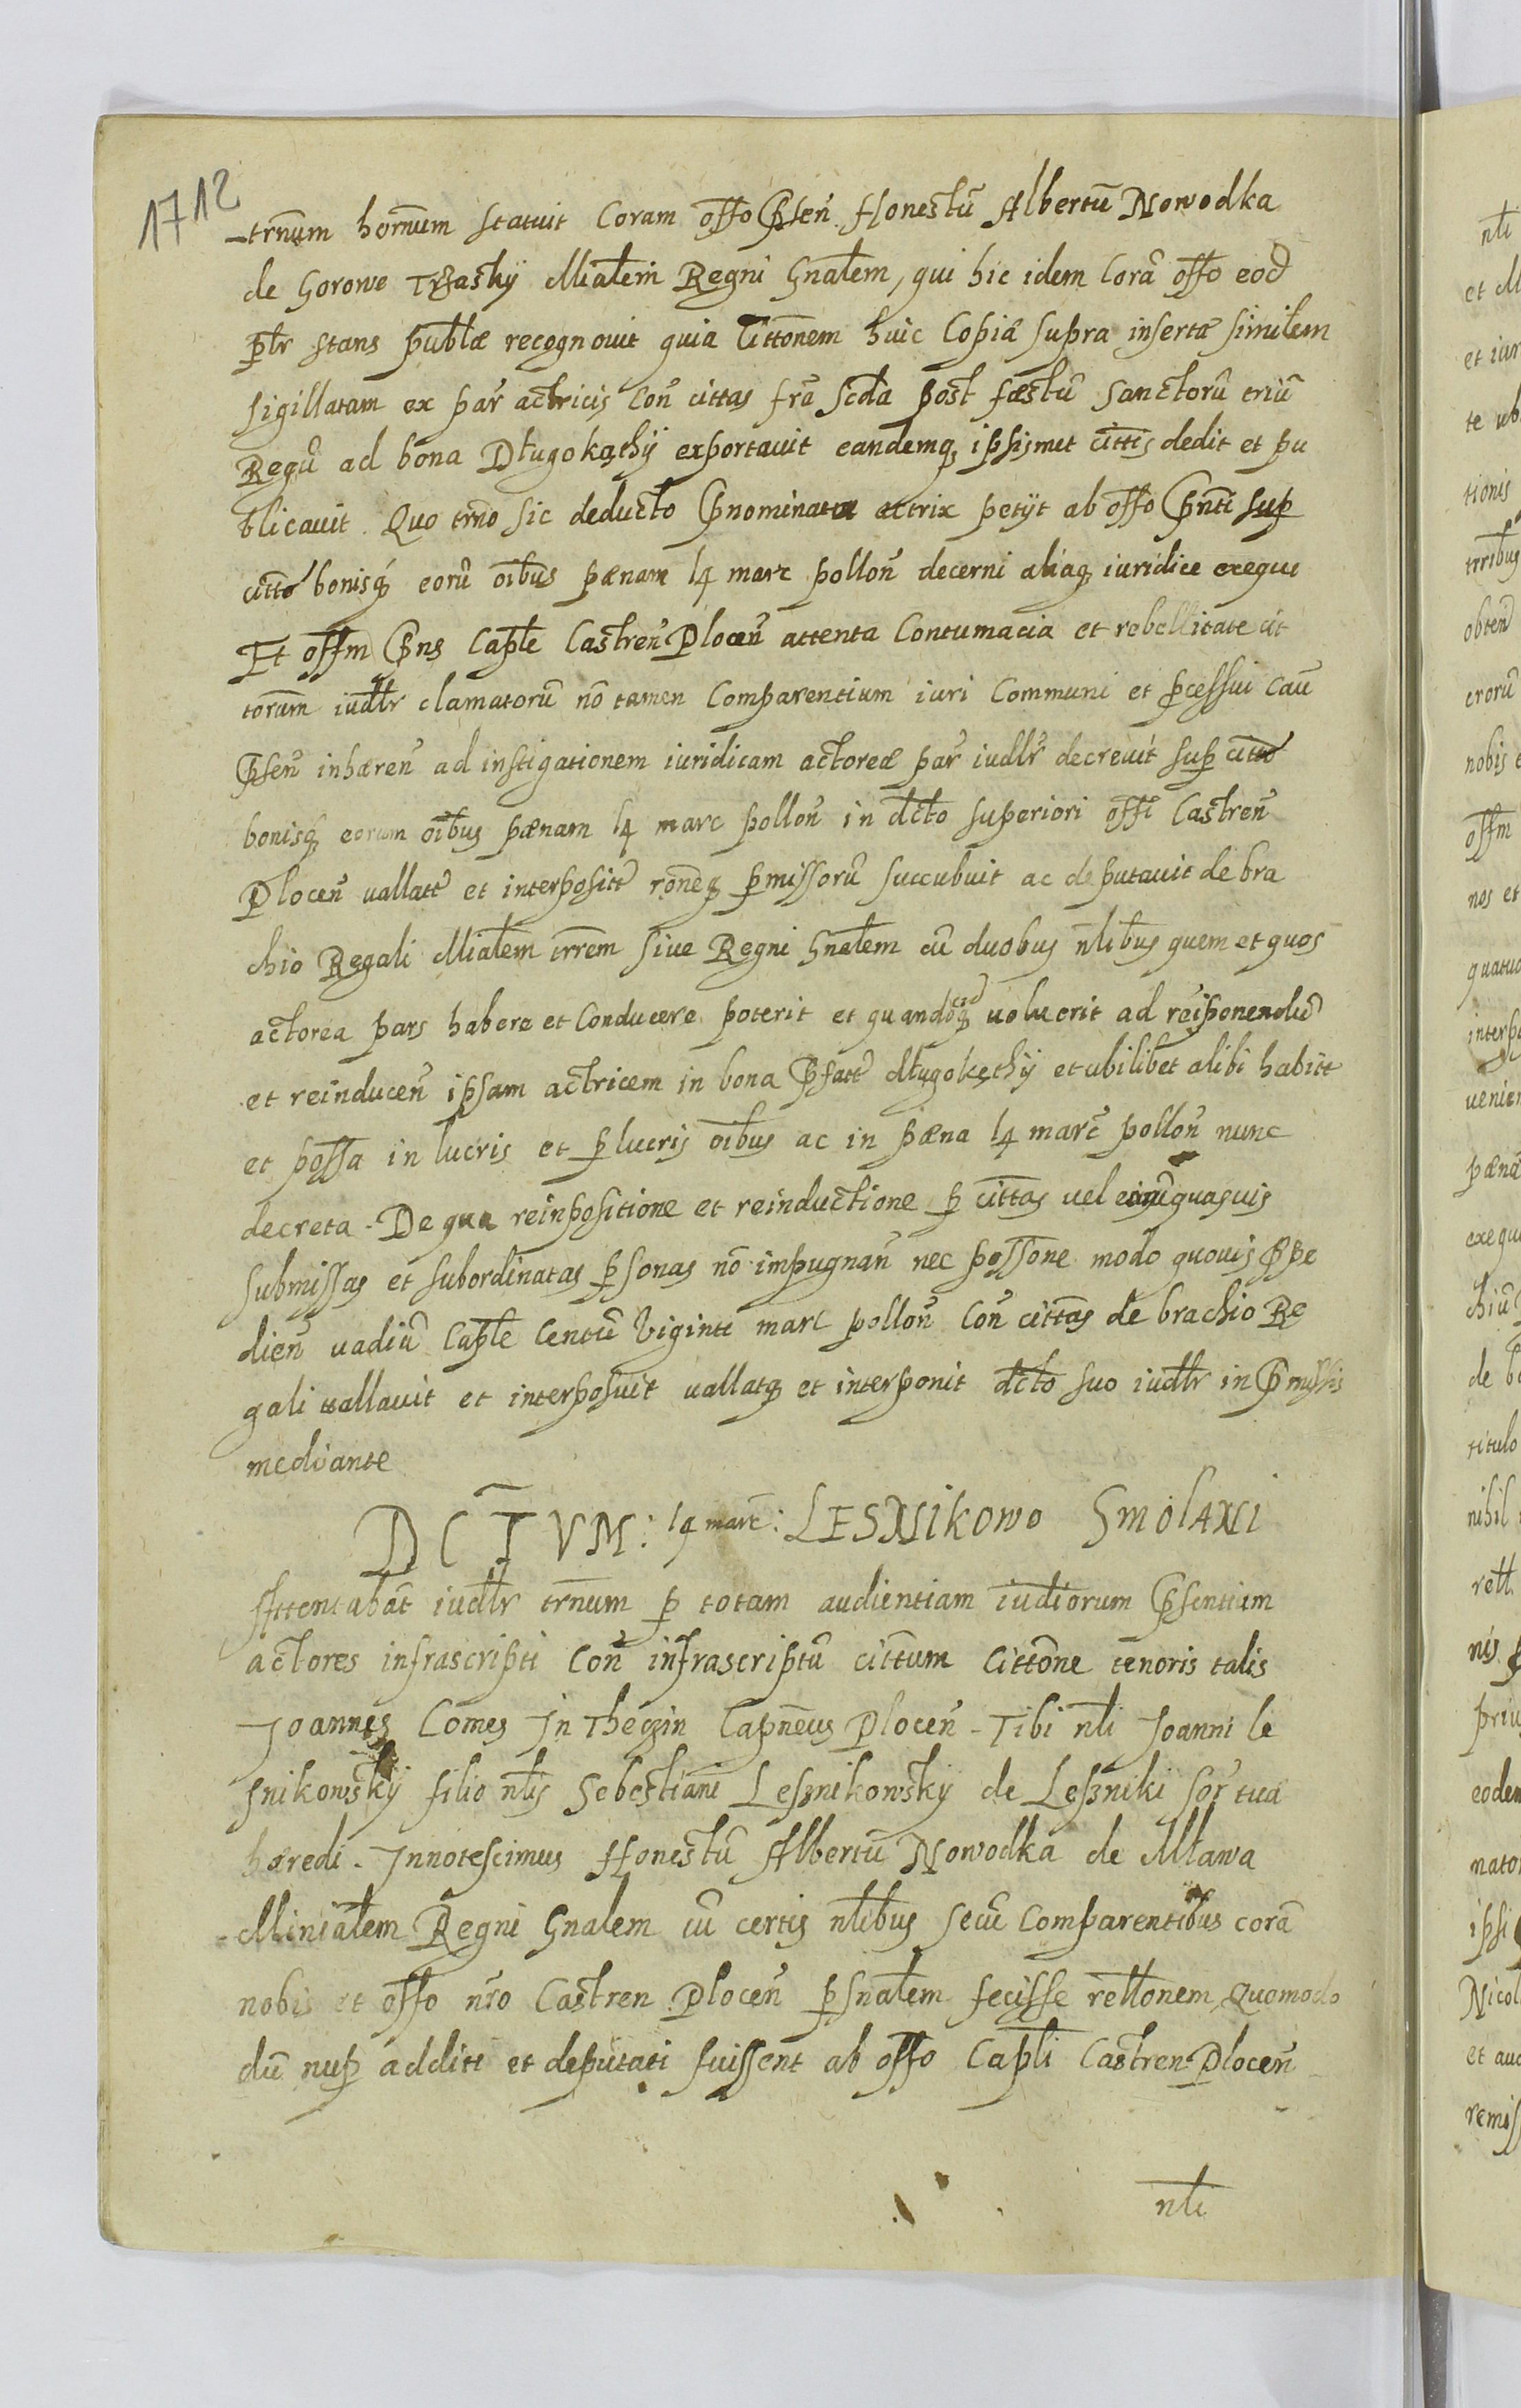 1712
-trnum hornum statuit Coram offo Psen Honestū Albertū Nowodka
de Gorowe Trzasky Mialem Regni Gnalem, qui hic idem Corā offo eod
plr stans publæ recognouit quia Cittonem huic Copiæ supra insertæ similem
sigillatam ex par actricis Con cittas fra scda post festū Sanctorū triū
Regū ad bona Długokąthy exportauit eandemq ipsismet cittis dedit et pu
blicauit. Quo trno sic deducto Pnominata actrix petyt ab offo Pnti sup
citto bonisq eorū oibus pænam 14 marc pollon decerni aliaq iuridice exequi
Et offm Pns Caple Castren Plocen attenta Contumacia et rebellitate cit
torum iudlr clamatorū nō tamen Comparentium iuri Communi et pcessui Cau
Psen inhæren ad instigationem iuridicam actoreæ par iudlr decreuit sup citto
bonisq eorum oibus pænam 14 marc pollon in dcto superiori offi Castren
Plocen uallatt et interpositt roneq pmissorū succubuit ac deputauit de bra
chio Regali Mialem trrem siue Regni Gnalem cū duobus nlibus quem et quos
actorea pars habere et Conducere poterit et quandoq uoluerit ad reiponendū
et reinducen ipsam actricem in bona Pfatt długokęthy et ubilibet alibi habitt
et possa in lucris et plucris oibus ac in pæna 14 marc pollon nunc
decreta. De qua reinpositione et reinductione p cittas uel eorū quasuis
submissas et subordinatas psonas nō impugnan nec possone modo quouis Ppe
dien uadiū Caple Centū Viginti marc pollon Con cittas de brachio Re
gali uallauit et interposuit uallatq et interponit dcto suo iudlr in Pmissis
mediante
DCTVM: 14 marc: LESNikowo SmolANi
Attentabāt iudlr trnum p totam audientiam iudiorum Psentium
actores infrascripti Con infrascriptū cittum Cittone tenoris talis
Joannes Comes In Theczin Capneus Plocen. Tibi nli Joanni le
snikowsky filio nlis Sebestiani Lesznikowsky de Leszniki sor tua
hæredi. Innotescimus Honestū Albertū Nowodka de Mława
Minialem Regni Gnalem cū certis nlibus secū Comparentibus corā
nobis et offo nro Castren Plocen psnalem fecisse rellonem, Quomodo
dū nup additi et deputati fuissent ab offo Capli Castren Plocen
nli